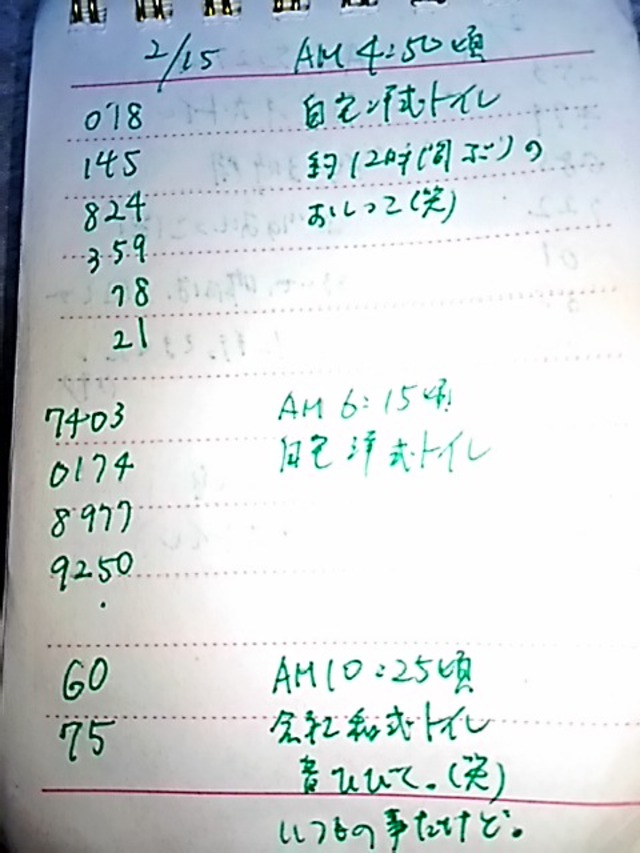 2/15 AM 4:50頃
018 自宅洋式トイレ
145 約12時間ぶりの
824 おしっこ(笑)
359
78
21
7403 AM 6:15頃
0174 自宅洋式トイレ
8977
9250
.
60 AM10:25頃
75 会社和式トイレ
音ひびく。(笑)
いつもの事だけど。